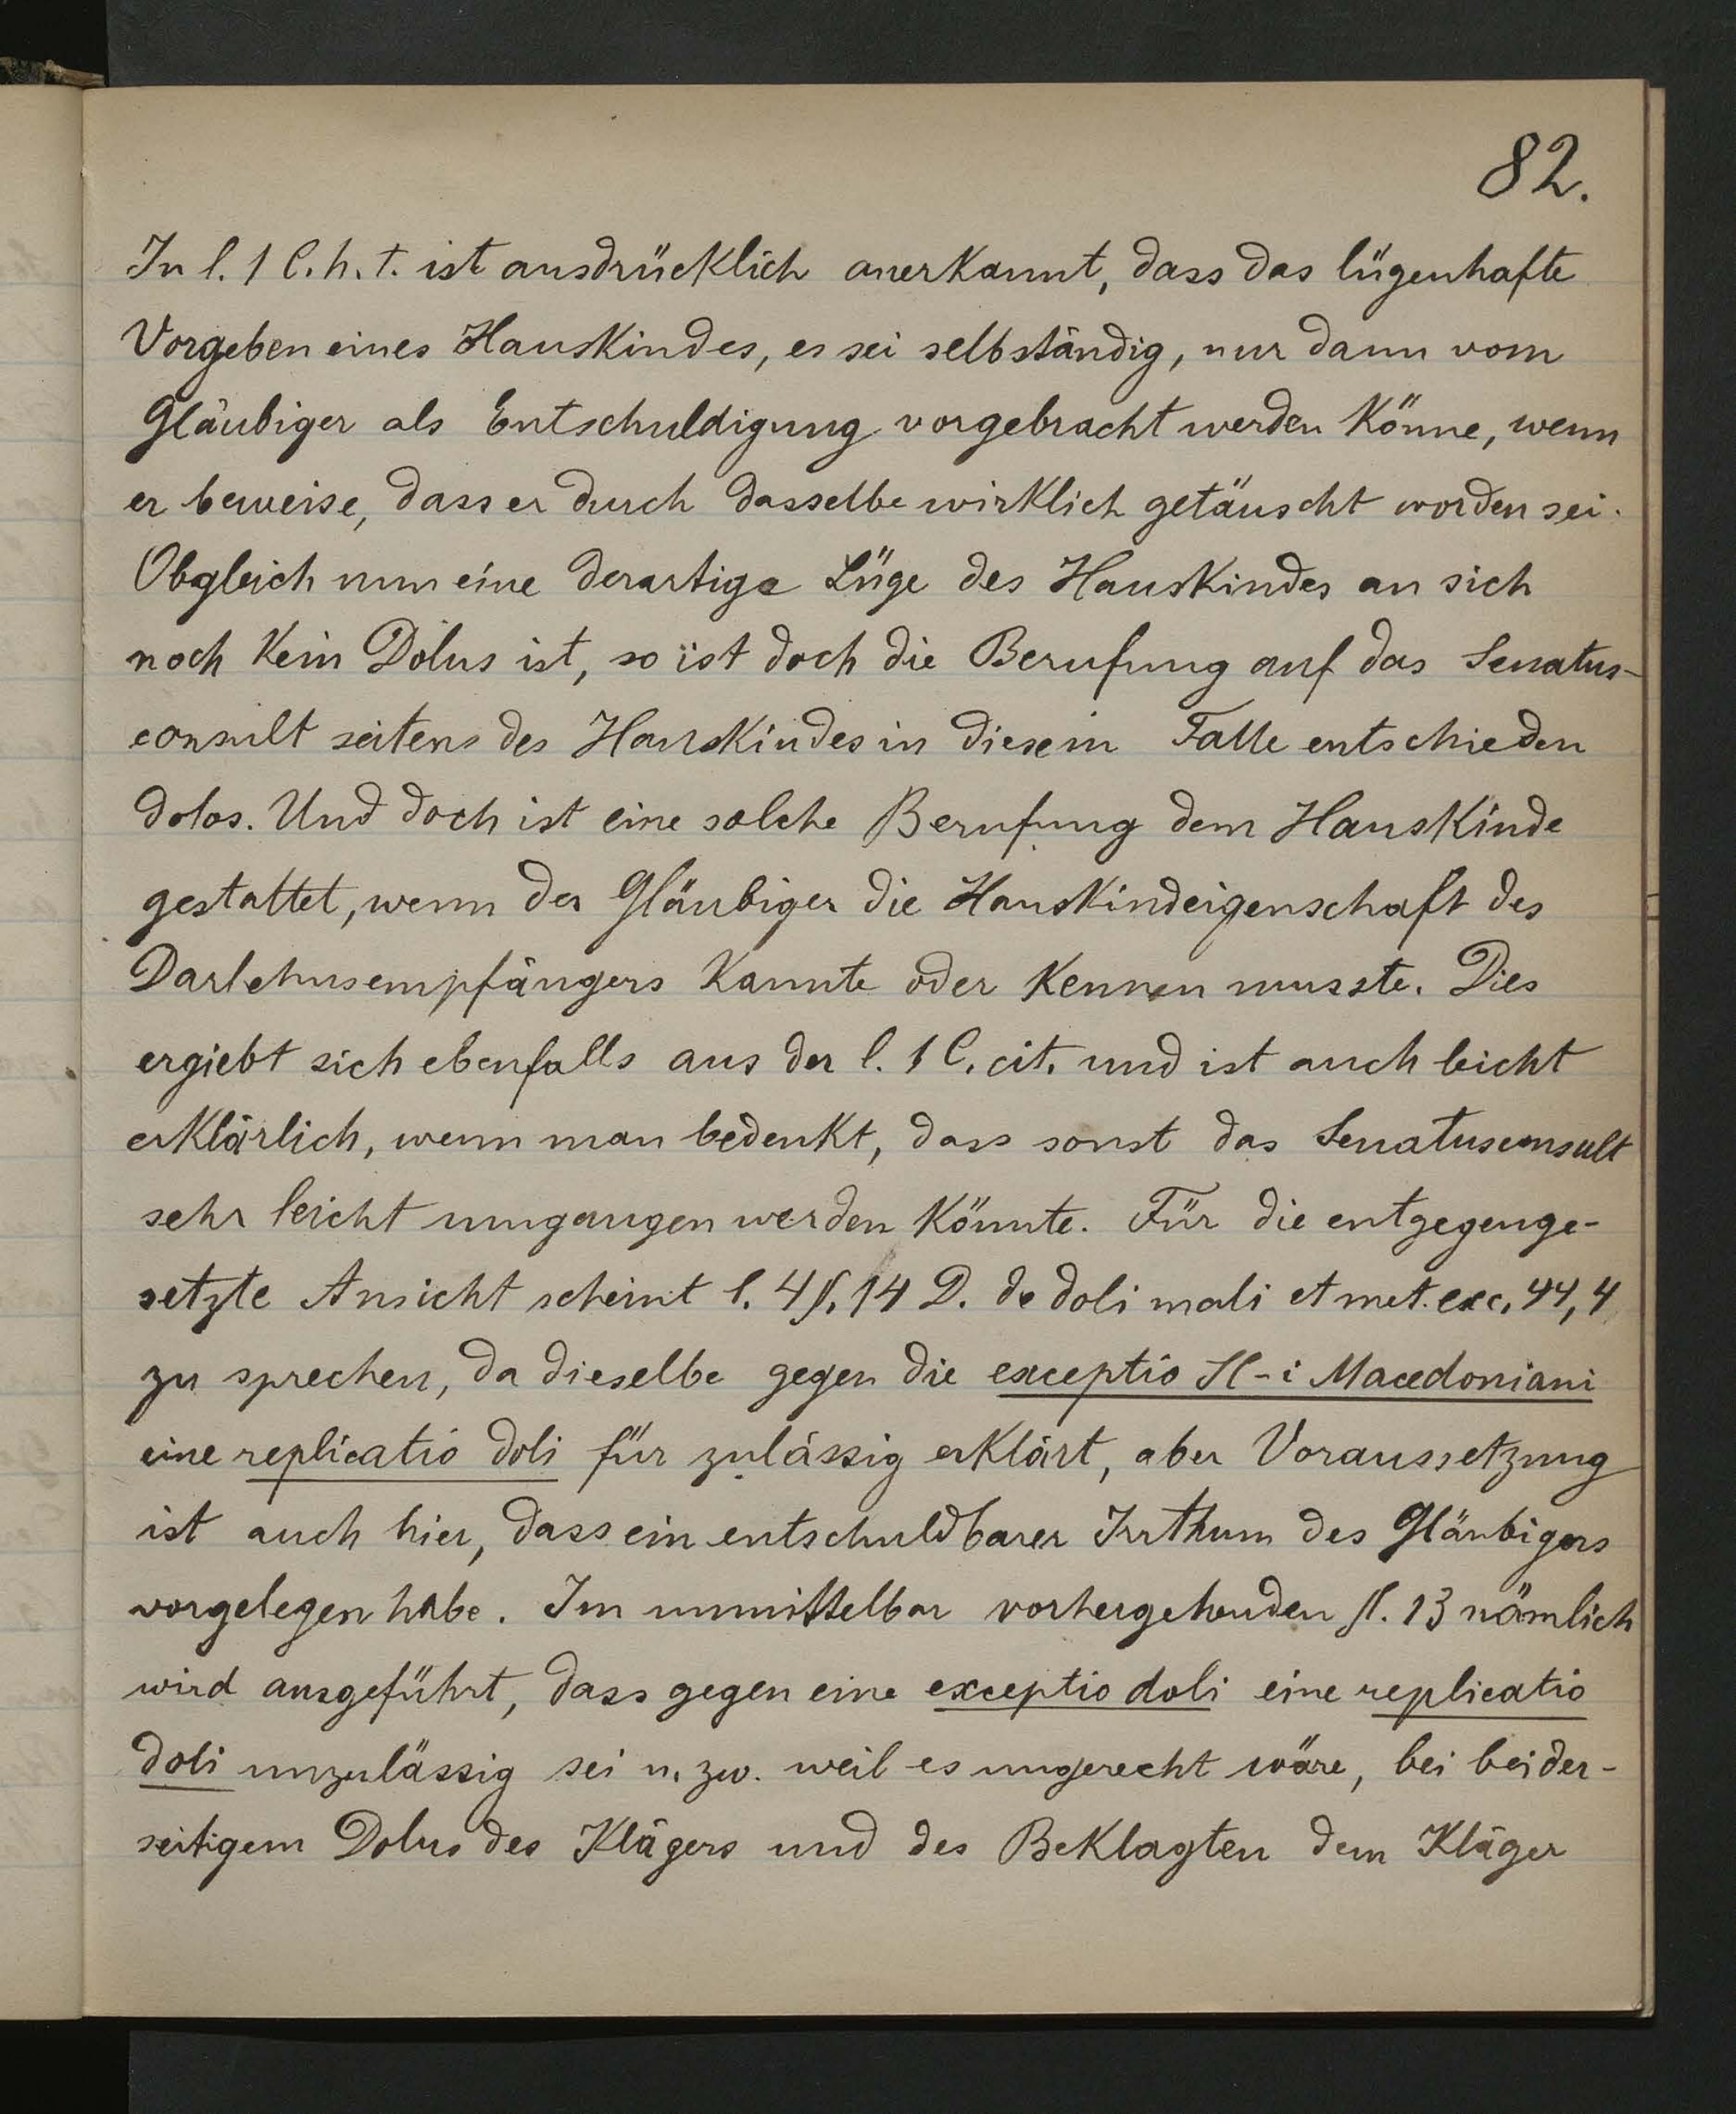 82.
In l. 1 C. h. t. ist ausdrücklich anerkannt, dass das lügenhafte
Vorgeben eines Hauskindes, es sei selbständig, nur dann vom
Gläubiger als Entschuldigung vorgebracht werden könne, wenn
er beweise, dass er durch dasselbe wirklich getäuscht worden sei.
Obgleich nun eine derartige Lüge des Hauskindes an sich
noch kein Dolus ist, so ist doch die Berufung auf das Senatus-
consult seitens des Hauskindes in diesem Falle entschieden
dolos. Und doch ist eine solche Berufung dem Hauskinde
gestattet, wenn der Gläubiger die Hauskindeigenschaft des
Darlehnsempfängers kannte oder kennen musste. Dies
ergiebt sich ebenfalls aus der l. 1 C. cit. und ist auch leicht
erklärlich, wenn man bedenkt, dass sonst das Senatusconsult
sehr leicht umgangen werden könnte. Für die entgegenge-
setzte Ansicht scheint l. 4 §. 14 D. de doli mali et met. exc. 44, 4
zu sprechen, da dieselbe gegen die exceptio SC-i Macedoniani
eine replicatio doli für zulässig erklärt, aber Voraussetzung
ist auch hier, dass ein entschuldbarer Irrthum des Gläubigers
vorgelegen habe. Im unmittelbar vorhergehenden §. 13 nämlich
wird ausgeführt, dass gegen eine exceptio doli eine replicatio
doli unzulässig sei u. zw. weil es ungerecht wäre, bei beider-
seitigem Dolus des Klägers und des Beklagten dem Kläger